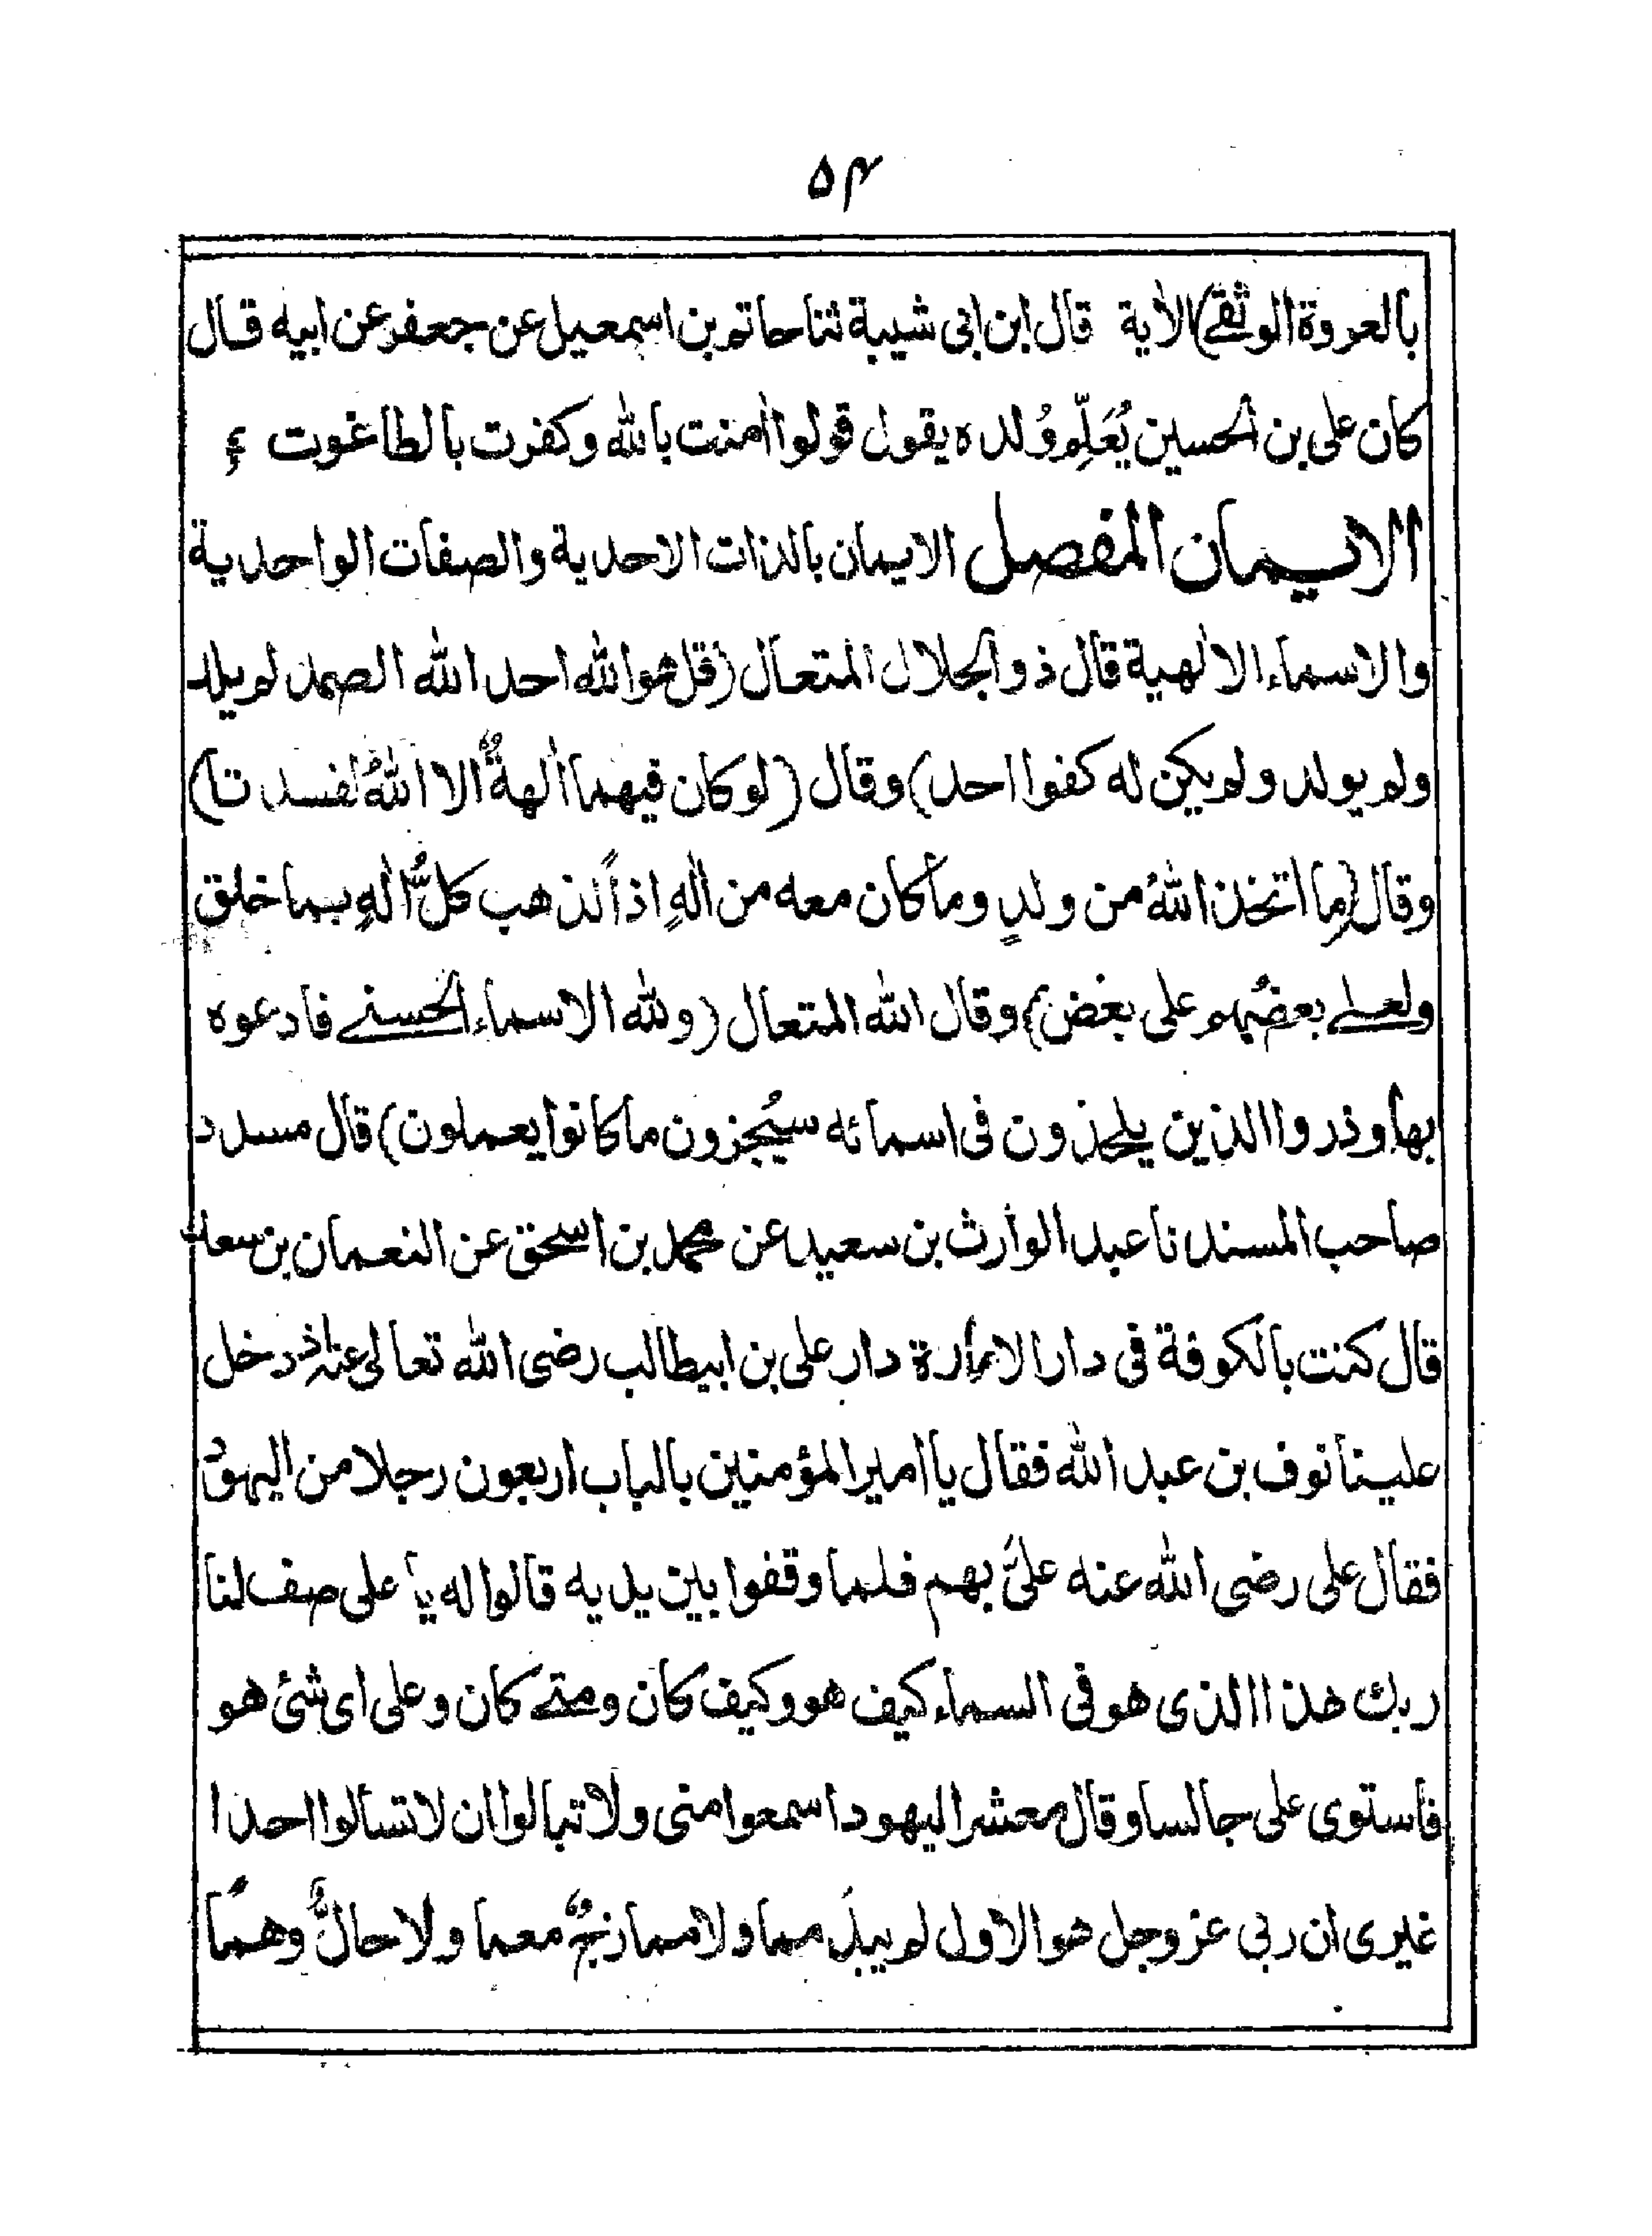 ۵۴
بالعروة الوثقے) الاٰية قال ابن ابى شيبة ثنا حاتم بن اسمعيل عن جعفر عن ابيه قال
كان على بن الحسين يُعَلِّم وُلده يقول قولوا اٰمنت بالله وكفرت بالطاغوت
الايمان المفصل الايمان بالذات الاحدية والصفات الواحدية
والاسماء الالٰهية قال ذو الجلال المتعال (قل هو الله احد الله الصمد لم يلد
ولم يولد ولم يكن له كفوا احد) وقال (لو كان فيهما اٰلهةٌ الا اللهُ لفسدتا)
وقال (ما اتخذ اللهُ من ولدٍ وما كان معه من الٰهٍ اذاً لذهب كلُّ الٰهٍ بما خلق
ولعلے بعضُهم على بعض) وقال الله المتعال (ولله الاسماء الحسنے فادعوه
بها وذروا الذين يلحدون فى اسمائه سيُجزون ما كانوا يعملون) قال مسدد
صاحب المسند نا عبد الوارث بن سعيد عن محمد بن اسحق عن النعمان بن سعد
قال كنت بالكوفة فى دار الامارة دار على بن ابيطالب رضى الله تعالى عنه اذ دخل
علينا نوف بن عبد الله فقال يا امير المؤمنين بالباب اربعون رجلا من اليهود
فقال على رضى الله عنه علىَّ بهم فلما وقفوا بين يديه قالوا له يا على صف لنا
ربك هذا الذى هو فى السماء كيف هو وكيف كان ومتے كان وعلى اى شئ هو
فاستوى على جالسا وقال معشر اليهود اسمعوا منى ولا تبالوا ان لا تسألوا احدا
غيرى ان ربى عز وجل هو الاول لم يبدُ مما ولا ممازجٌ معما ولا حالٌّ وهمًا